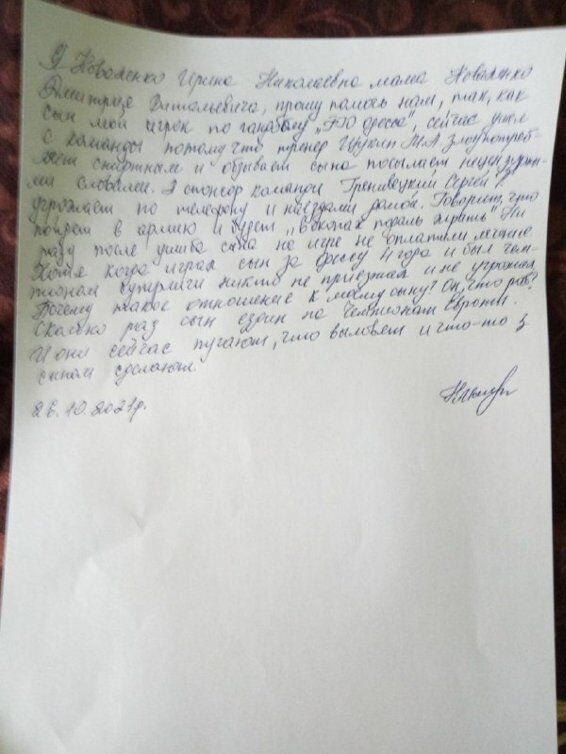 Я Новоженко Ирина Николаевна мама Новоженко
Дмитрия Витальевича, прошу помочь нам, так, как
сын мой игрок по гандболу „ЗЮ Одесса", сейчас ушел
с команды потому что тренер Цуркан Т.А. злоупотреб-
ляет спиртным и обзывает сына посылает нецензурны-
ми словами. А спонсор команды Гренивецкий Сергей
угрожает по телефону и наездами домой. Говорит, что
пойдет в армию и будет „в окопах падаль жрать" Ни
разу после ушиба сына на игре не оплатили лечение
Хотя когда играл сын за Одессу 4 года и был чем-
пионом никто не приезжал и не угрожал
Почему такое отношение к моему сыну? Он, что раб?
Сколько раз сын ездил по Чемпионам Европы.
И они сейчас пугают, что выловят и что-то з
сином сделают.
26.10.2021р.